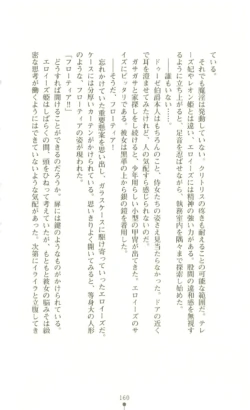 ている。
クリトリスの疼きも耐えることの可能な範囲だ。テレ
ーズ妃やレオン姫とは違い、エロイーズには精神の強い力がある。股間の違和感を無視す
るように立ち上がると、足音を忍ばせながら、執務室内を隅々まで探索し始めた。
……誰もいない……
ドゥーゼ伯爵本人はもちろんのこと、侍女たちの姿さえ見当たらなかった。ドアの近く
で耳を澄ませてみたけれど、人の気配すら感じられないのだ。
ガサガサと家探しを続けると、少年用らしい小型の甲冑が出てきた。エロイーズのサ
イズにピッタリである。彼女は黒革の上から銀の鎧を着用した。
「そうだ、フローティア……」
忘れかけていた重要懸案を思い出し、ガラスケースに駆け寄っていったエロイーズだ。
ケースには分厚いカーテンがかけられていると、思いきりよく開いてみると、等身大の人形
のような、フローティアの姿が現れた。
「フローティア!!」
どうすれば開けることができるのだろうか。扉には鍵のようなものがかけられている。
エロイーズ姫はしばらくの間、頭をひねって考えていたが、もともと彼女の脳みそは緻
密な思考が働くようにはできていないような気配があった。次第にイライラと立腹してき
160